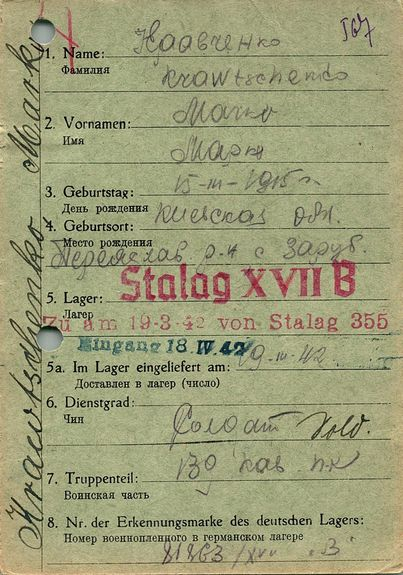 I67
Кравченко
1. Name:
Фамилия
Krawtschenko
Марко
2. Vornamen:
Имя
Марко
3. Geburtstag: 15-III-1915 г.
День рождения
4. Geburtsort: Киевская обл.
Место рождения
Переяслав р-н с Заруб.
Stalag XVII B
5. Lager:
Лагер
Zu am 19-3-42 von Stalag 355
Eingang 18 IV. 42
5a. Im Lager eingeliefert am: 19-III-42
Доставлен в лагер (число)
6. Dienstgrad:
Чин
Солдат Sold.
7. Truppenteil: кав. п-к
Воинская часть
8. Nr. der Erkennungsmarke des deutschen Lagers:
Номер военнопленного в германском лагере
/XVII "B"
Krawtschenko Marko